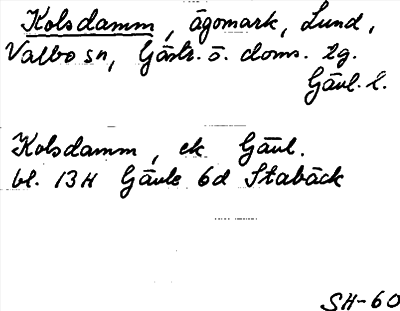 Kolsdamm, ägomark, Lund,
Valbo sn, Gästr. ö. doms. tg.
Gävl. l.
Kolsdamm, ek Gävl.
bl. 13H Gävle 6d Stabäck
SH-60